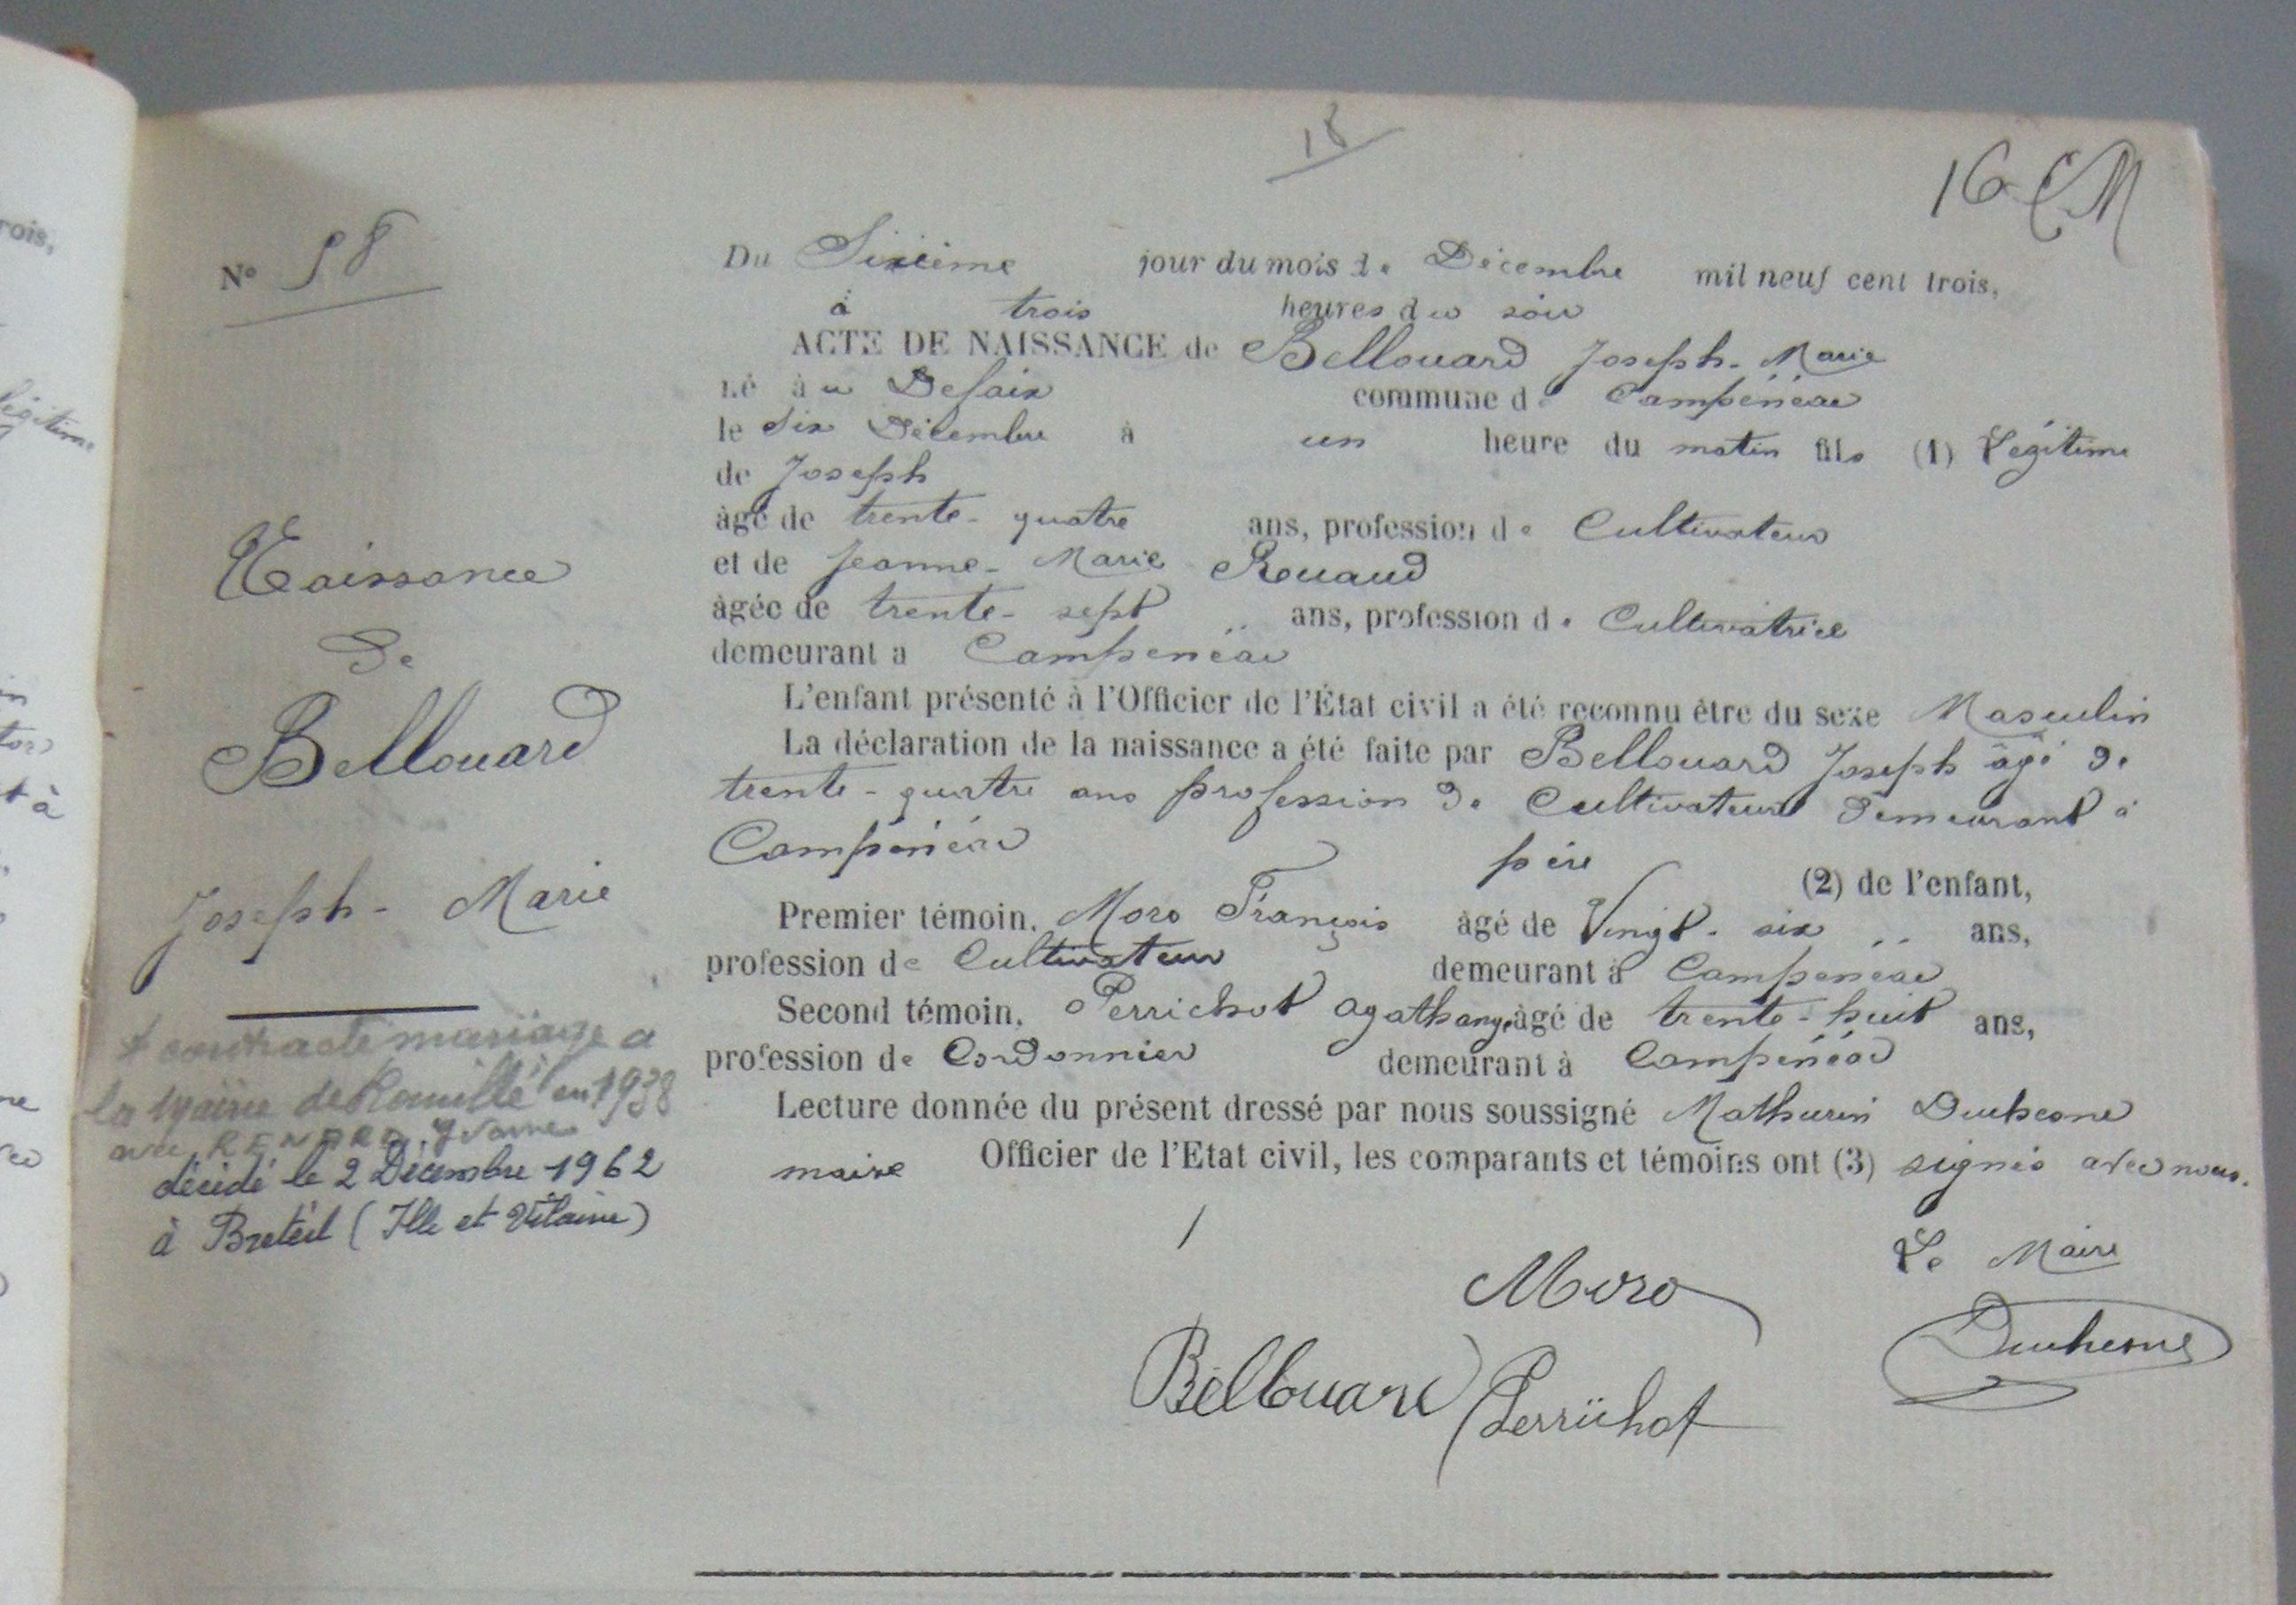 18
16
N° 58
Du Sixième jour du mois de Décembre mil neuf cent trois,
à trois heures du soir
ACTE DE NAISSANCE de Bellouard Joseph-Marie
né à u Desaix commune de Campénéac
le six Décembre à un heure du matin fils (1) Légitime
de Joseph
âgé de trente-quatre ans, profession de Cultivateur
et de Jeanne-Marie Rouaud
âgée de trente-sept ans, profession de Cultivatrice
demeurant à Campénéac
L'enfant présenté à l'Officier de l'État civil a été reconnu être du sexe Masculin
La déclaration de la naissance a été faite par Bellouard Joseph âgé de
trente-quatre ans profession de Cultivateur demeurant à
Campénéac père (2) de l'enfant,
Premier témoin, Moro François âgé de Vingt-six ans,
profession de Cultivateur demeurant à Campénéac
Second témoin, Perrichot Agathange âgé de trente-huit ans,
profession de Cordonnier demeurant à Campénéac
Lecture donnée du présent dressé par nous soussigné Mathurin Duchesne
maire Officier de l'Etat civil, les comparants et témoins ont (3) signés avec nous.
Le Maire
Moro
Duchesne
Bellouard Perrichot
Naissance
de
Bellouard
Joseph-Marie
+ contracté mariage a
la Mairie de Romillé en 1938
avec RENARD Yvonne
décédé le 2 Décembre 1962
à Breteil (Ille et Vilaine)
rois,
légitime